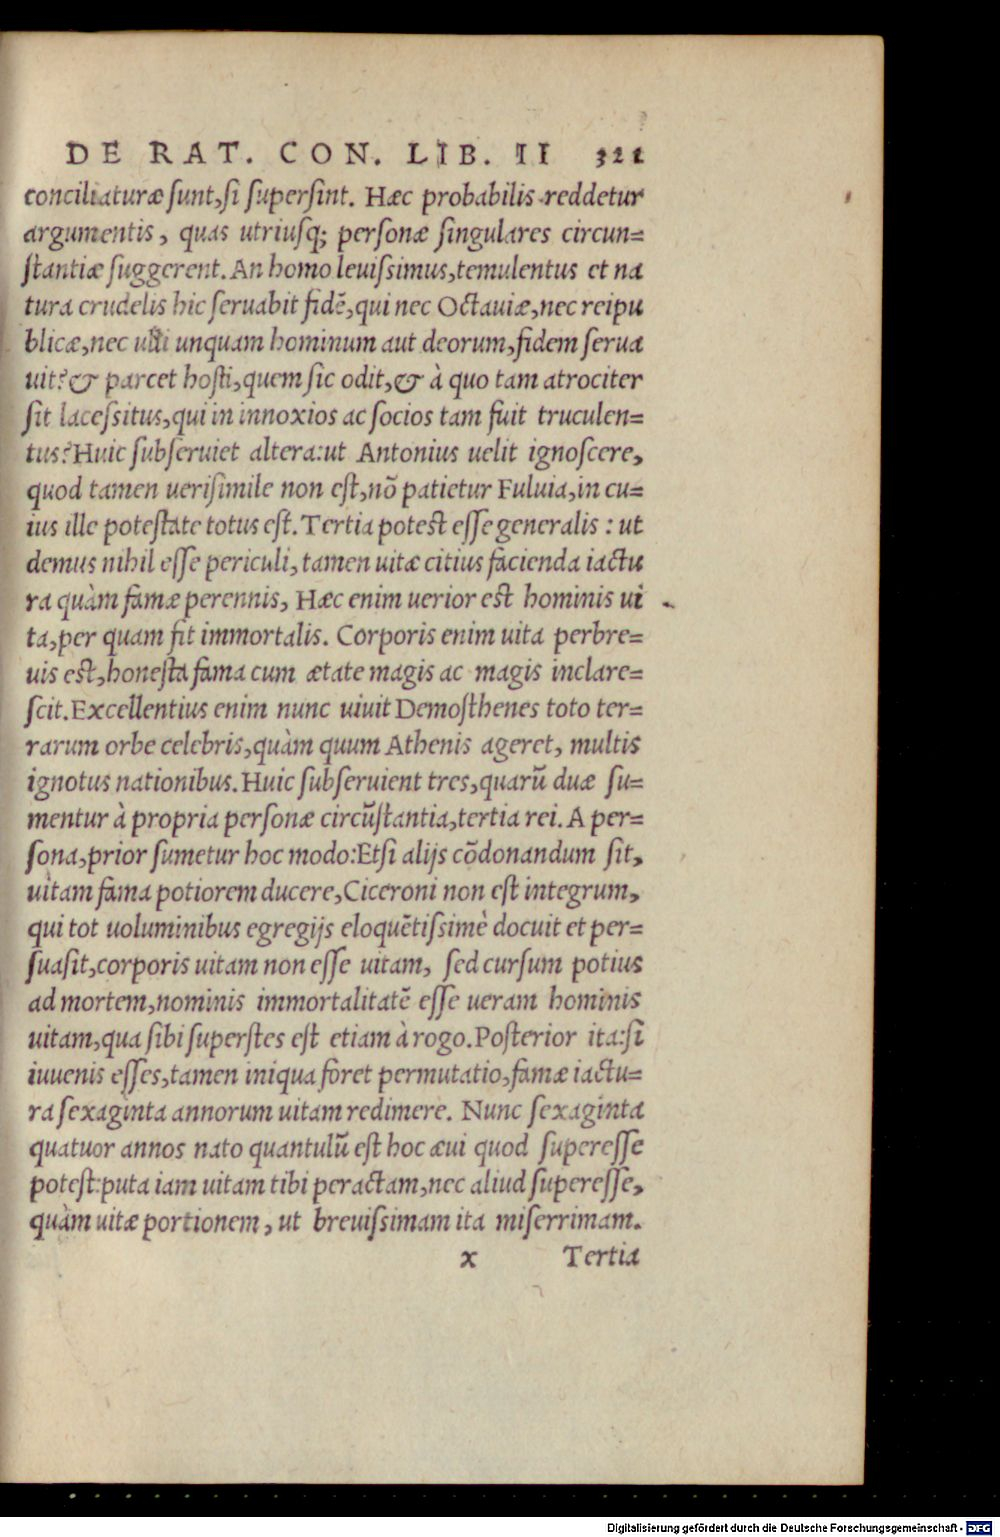 DE RAT. CON. LIB. II 321
conciliaturæ sunt,si supersint. Hæc probabilis reddetur
argumentis, quas utriusq; personæ singulares circun=
stantiæ suggerent. An homo leuissimus,temulentus et na
tura crudelis hic seruabit fidē,qui nec Octauiæ,nec reipu
blicæ,nec ulli unquam hominum aut deorum,fidem serua
uit?& parcet hosti,quem sic odit,& à quo tam atrociter
sit lacessitus,qui in innoxios ac socios tam fuit truculen=
tus?Huic subseruiet altera:ut Antonius uelit ignoscere,
quod tamen uerisimile non est,nō patietur Fuluia,in cu=
ius ille potestate totus est. Tertia potest esse generalis : ut
demus nihil esse periculi,tamen uitæ citius facienda iactu
ra quàm famæ perennis, Hæc enim uerior est hominis ui
ta,per quam fit immortalis. Corporis enim uita perbre=
uis est,honesta fama cum ætate magis ac magis inclare=
scit.Excellentius enim nunc uiuit Demosthenes toto ter=
rarum orbe celebris,quàm quum Athenis ageret, multis
ignotus nationibus.Huic subseruient tres,quarū duæ su=
mentur à propria personæ circūstantia,tertia rei. A per=
sona,prior sumetur hoc modo:Etsi alijs cōdonandum sit,
uitam fama potiorem ducere,Ciceroni non est integrum,
qui tot uoluminibus egregijs eloquētissimè docuit et per=
suasit,corporis uitam non esse uitam, sed cursum potius
ad mortem,nominis immortalitatē esse ueram hominis
uitam,qua sibi superstes est etiam à rogo.Posterior ita:si
iuuenis esses,tamen iniqua foret permutatio,famæ iactu=
ra sexaginta annorum uitam redimere. Nunc sexaginta
quatuor annos nato quantulū est hoc æui quod superesse
potest:puta iam uitam tibi peractam,nec aliud superesse,
quàm uitæ portionem, ut breuissimam ita miserrimam.
x Tertia
Digitalisierung gefördert durch die Deutsche Forschungsgemeinschaft - DFG